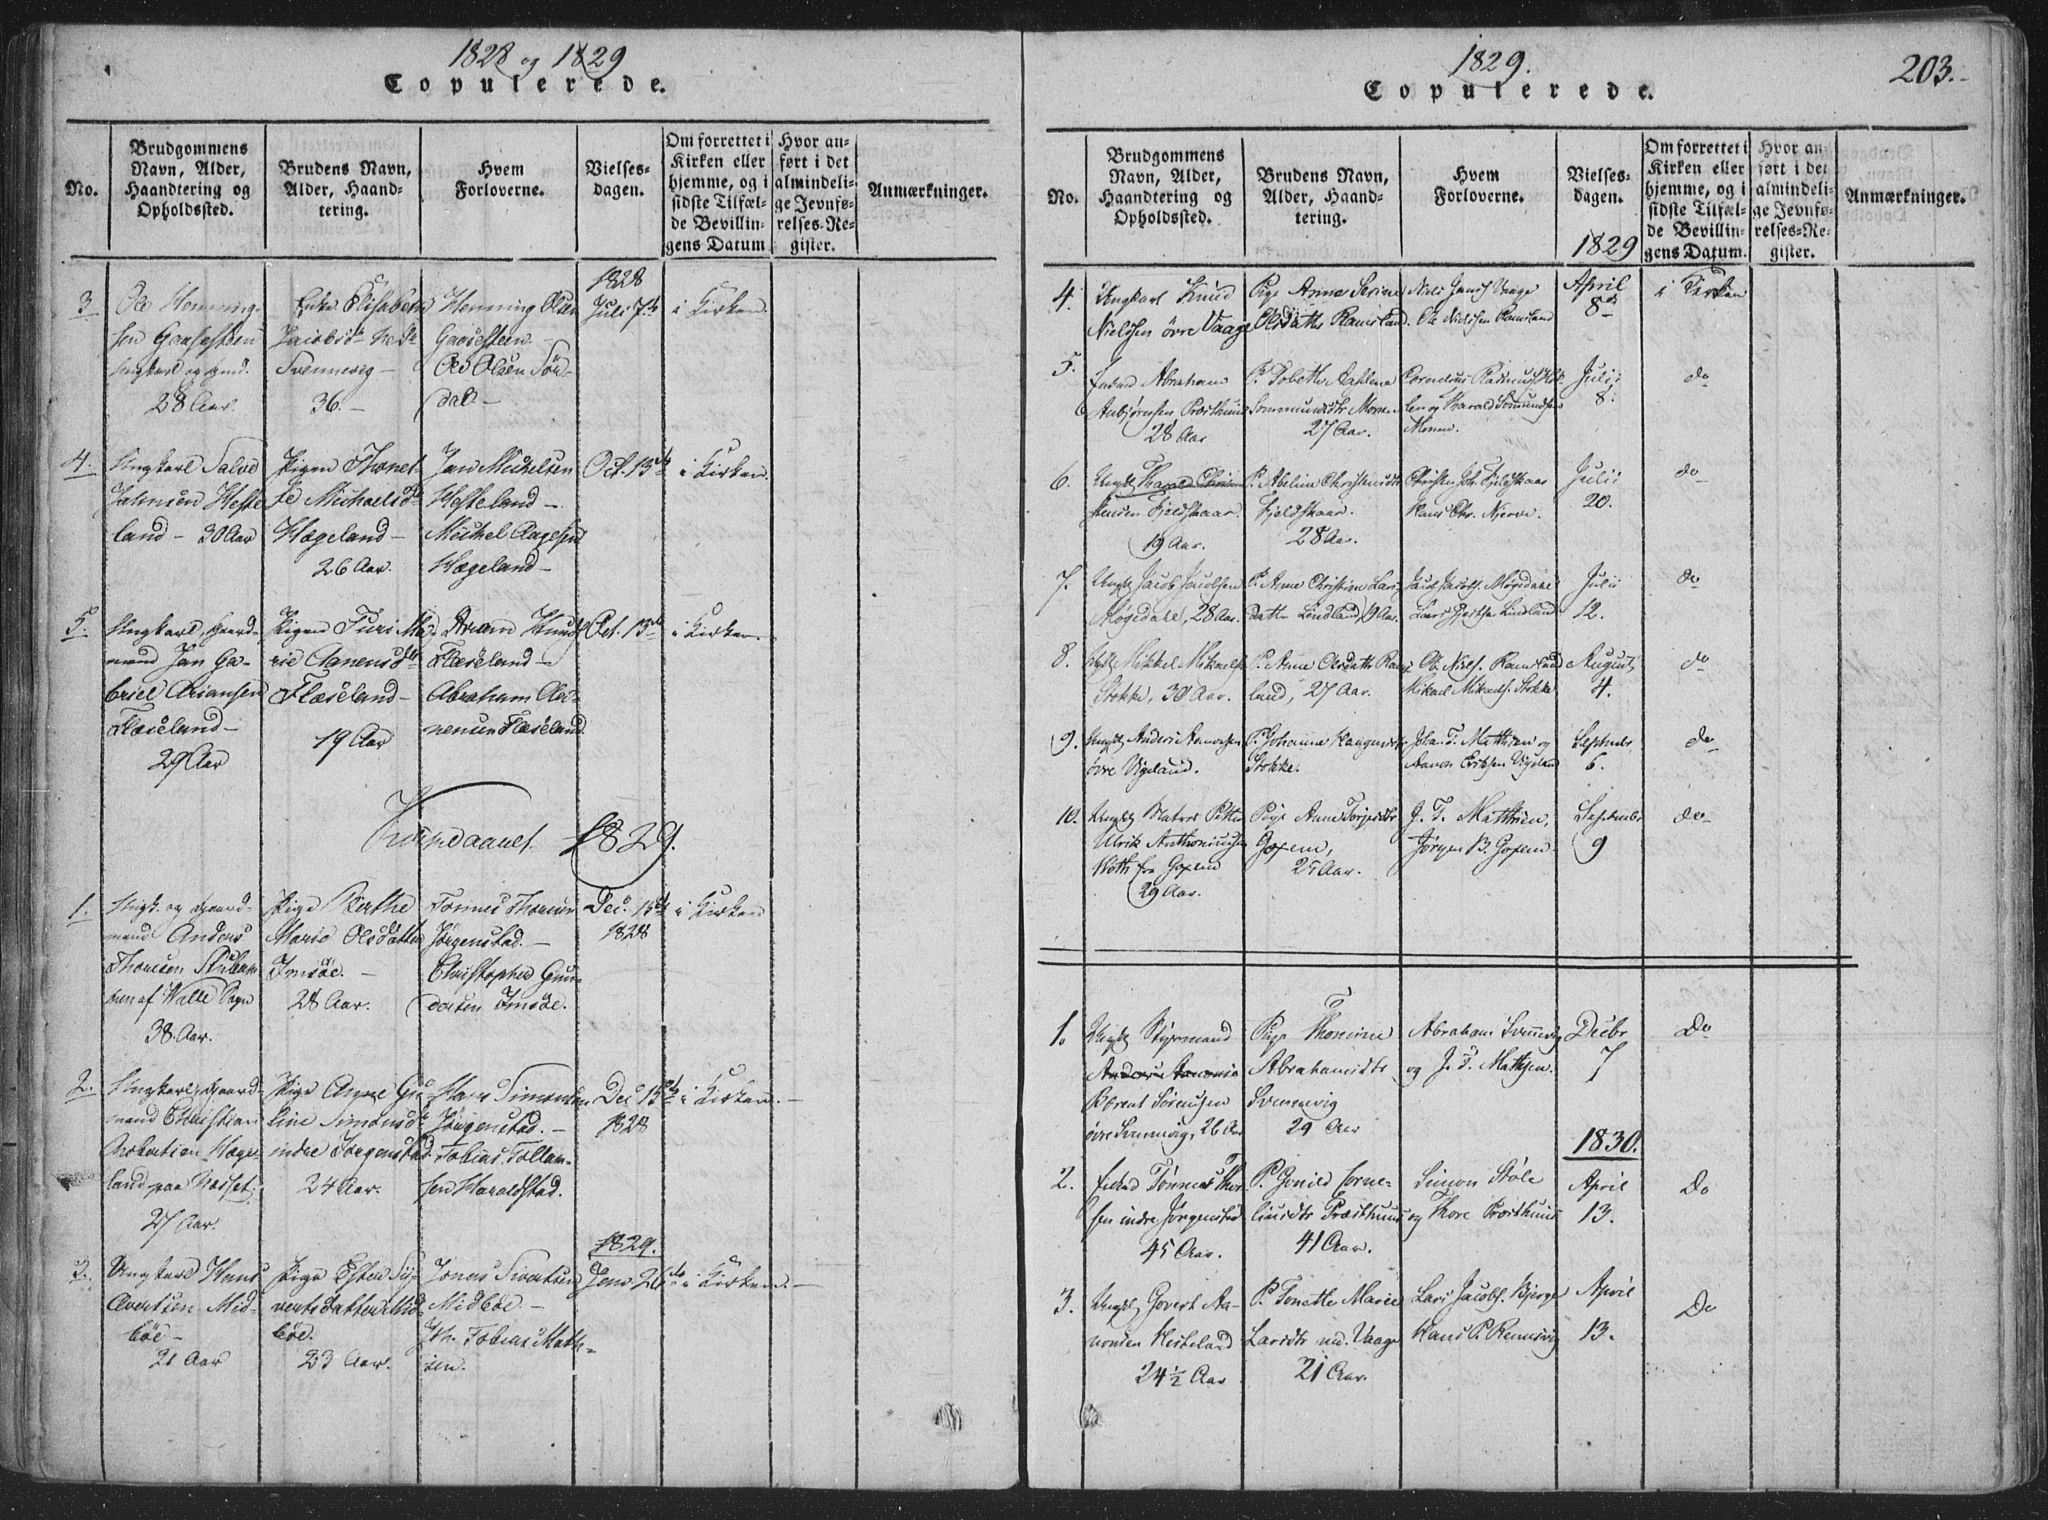 1828 og 1829
Copulerede.
No.
Brudgommens
Navn, Alder,
Haandtering og
Opholdssted.
Brudens Navn,
Alder, Haand-
tering.
Hvem
Forloverne.
Vielses-
dagen.
Om forrettet i
Kirken eller
hjemme, og i
sidste Tilfæl-
de Bevillin-
gens Datum
Hvor an-
ført i det
almindeli-
ge Jevnfø-
relses-Re-
gister.
Anmærkninger.
3
Ole Henning-
sen Gaaseesteen
Ungkarl og
28 Aar.
Enke Elisabeth
Jacobsd
Svennevig
36.-
Henning Olsen
Gaaseesteen
Ole Olsen Sör-
dal.-
1828
Juli 7de
i Kirken.
4.
Ungkarl Salve
Jahnsen Hefte
land - 30 Aar
Pigen Thonet-
te Michaelsd
Hægeland -
26 Aar.
Jan Michelsen
Hefteland -
Michel Aagesen
Hægeland -
Oct. 13de
i Kirken.
5
Ungkarl, Gaard-
mand Jan Ga-
briel Ariansen
Flæseland -
29 Aar
Pigen Turi Ma-
rie Aanensd
Flæseland -
19 Aar
Arian Knuds
Flæseland -
Abraham Aa-
nensen Flæseland
Oct. 13de
i Kirken.
Kirkeaaret 1829.
1.
Ungk. og Gaard-
mand Anders
Thomsen
af Halle Sogn
38. Aar.
Pige Berthe
Marie Olsdatter
Imsöe. -
28 Aar.
Tönnes Thomsen
Jörgenstad. -
Christopher Gun-
dersen Imsöe.
Dec. 15de
1828
i Kirken
2.
Ungkarl, Gaard-
mand Christian
Robertsen Hæge-
land paa Vasset.
27 Aar.
Pige Anne Gu-
line Simonsd
indre Jörgenstad
24 Aar.
Hans Simonsen
Jörgenstad. -
Tobias Tollam-
sen Haraldstad.
Dec 15de
1828
i Kirken. -
3.
Ungkarl Hans
Avertsen Mid-
böe -
21 Aar
Pige Ester Siv-
vertsdatter Mid-
böe.
23 Aar.
Jonas Sivertsen
Midböe. -
Jh. Tobias Math-
isen.
1829.
Jan. 26de
i Kirken. -
1829.
203.-
Copulerede.
No.
Brudgommens
Navn, Alder,
Haandtering og
Opholdssted.
Brudens Navn,
Alder, Haand-
tering.
Hvem
Forloverne.
Vielses-
dagen.
1829
Om forrettet i
Kirken eller
hjemme, og i
sidste Tilfæl-
de Bevillin-
gens Datum.
Hvor an-
ført i det
almindeli-
ge Jevnfø-
relses-Re-
gister.
Anmærkninger.
4.
Ungkarl Knud
Nielssen övre Vaage
Pige Anne Serine
Olsdatter Ramsland.
Niels Vaage
Ole Nielssen Ramsland
April
8de
i Kirken
5.
Abraham
Anbjørnsen Præsthuus
28 Aar
P. Tobethe Athlene
Sommundsdtr Monen
27 Aar.
Cornelius Rasmuss
og Harald Sommundsen
Monen.
Julii
8.
do
6.
Ungk.
Fjeldskaar.
19 Aar.
P. Abeline Christensdtr
Fjeldskaar.
28 Aa.
Christen Joh. Fjeldskaar
Hans Chr. Njerve.
Julii
20.
do
7.
Ungk. Jacob Jacobsen
Møgedahl, 28 Aar.
P. Anne Christine Lars-
datter Lindland, 19 Aar.
Jacob Jacobs. Møgedahl
Lars Lindland
Julii
12.
do
8.
Ungk. Mikkel Mikaelsen
Stokke, 30 Aar.
P. Anne Olsdatter Rams-
land, 27 Aar.
Ole Niels. Ramsland
Mikael Mikaels. Stokke
August,
4.
do
9.
Ungk.
övre Vigeland.
P. Johanne
Stokke.
Johan T. Mathisen og
Aanon Eriksen Vigeland
Septembr
6.
do
10.
Ungk. Petter
Ulrik Anthoniussen
Hoth fra Goxem
29 Aar.
Pige Anne Torjesdtr
Goxem,
25 Aar.
J. T. Matthisen,
Jörgen B. Goxem
September
9
do
1.
Ungk. Styrmand
Berent Sörensen
övre Svennevig, 26 Aar
Pige Thomine
Abrahamsdtr
Svennevig
29 Aar
Abraham Svennevig
og J. T. Mathsen.
Decbr
7
Do
1830.
2.
Tönnes Thor
sen indre Jörgenstad
45 Aar.
P. Gonild Corne-
liusdtr Præsthuus
41 Aar.
Simon Støle
og Thore Præsthuus
April
13.
Do
3.
Ungk. Govert Aa-
nonsen Hesteland
24½ Aar
P. Tonette Marie
Larsdtr nd. Vaage
21 Aar.
Lars Jacobs. Bjerge
Hans P. Rennevig
April
13.
Do